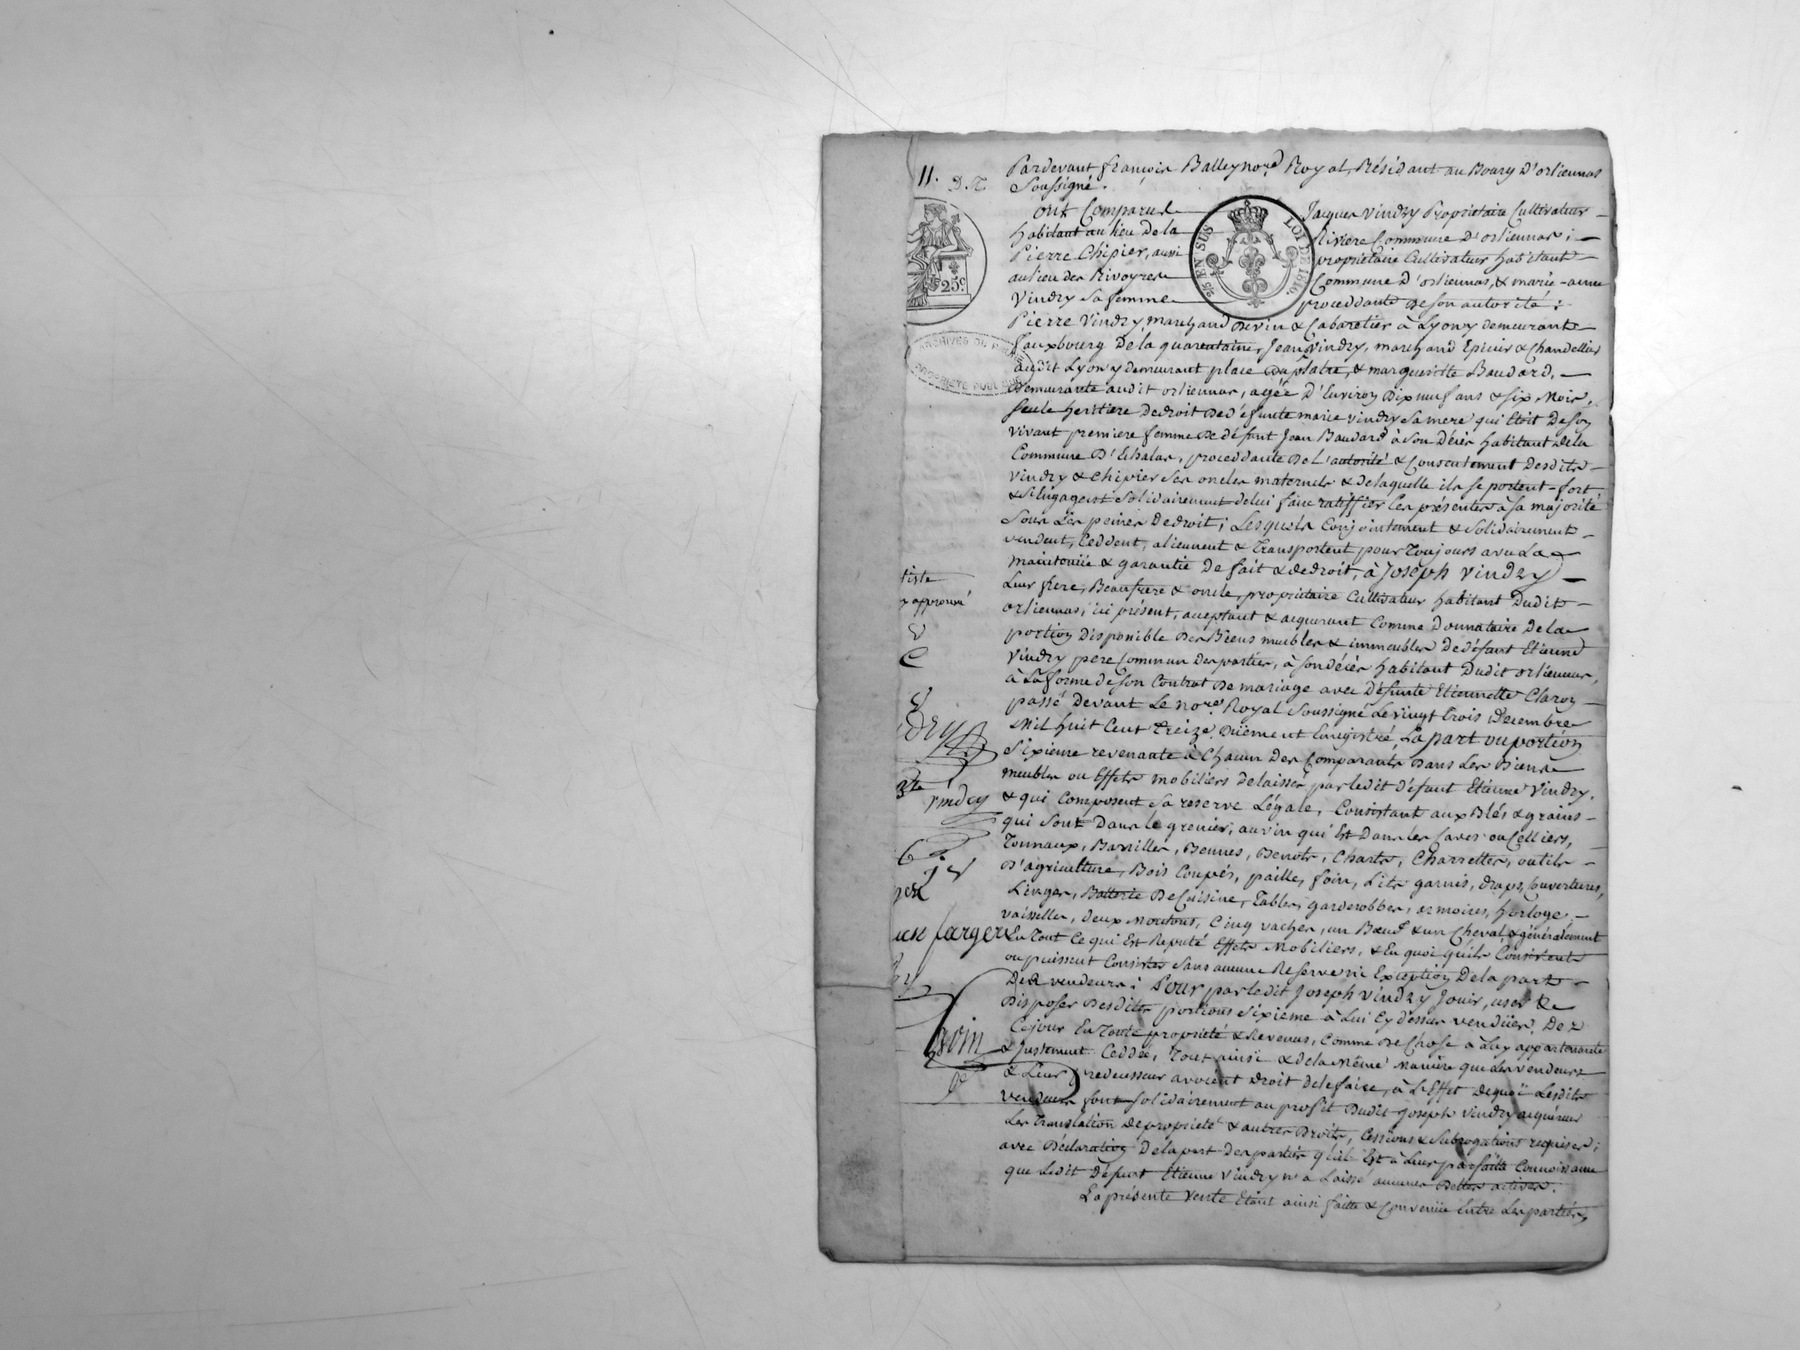 11. D.N.
Pardevant françois Balley no.re Royal, Résidant au Bourg D'orliennas
Soussigné.
ont Comparu Jacques Vindry Proprietaire Cultivateur
habitant au lieu de la Riviere Commune D'orliennas;
Pierre Chipier, aussi proprietaire Cultivateur habitant
au lieu des Rivoyres Commune D'orliennas, & marie-anne
Vindry sa femme proceddante de son autorité;
25 EN SUS
LOI DE 1816.
25c
Pierre Vindry, marchand de vin & Cabaretier à Lyon y demeurant
fauxbourg de la quarantaine, Jean Vindry, marchand Epicier & Chandellier
ARCHIVES DU RHÔNE
audit Lyon y demeurant place du platre, & margueritte Baudard,
PROPRIÉTÉ PUBLIQUE
Demeurante audit orliennas, agée D'Environ Dix neuf ans & six Mois,
seule heritiere de droit de défunte marie Vindry sa mere qui Etoit de son
vivant premiere femme de défunt Jean Baudard à son décès habitant de la
Commune D'Echalas, proceddante de L'autorité & Consentement desdits
Vindry & Chipier ses oncles maternels & de laquelle ils se portent-fort
& s'Engagent Solidairement de lui faire ratiffier les présentes à sa majorité
sous les peines de droit; Lesquels Conjointement & solidairement
vendent, Ceddent, alienent & Transportent pour Toujours avec La
maintenüe & garantie de fait & de droit, à Joseph Vindry
tiste
Leur frere, Beaufrere & oncle, proprietaire Cultivateur habitant Dudit
approuvé
orliennas, ici présent, aceptant & aquerant Comme Donnataire de la
portion Disponible des Biens meubles & immeubles de défunt Etienne
Vindry pere Commun des parties, à son décès habitant Dudit orliennas,
à la forme de son Contrat de mariage avec Défunte Etiennette Claron
passé Devant Le no.re Royal soussigné Le vingt trois Décembre
Mil huit Cent Treize Düement Enregistré, La part ou portion
Sixieme revenante à Chacun des Comparants dans les Biens
meubles ou Effets mobiliers delaissés par ledit défunt Etienne Vindry,
vindry
& qui Composent sa reserve Légale, Consistant aux Blés & grains
qui sont Dans le grenier, au vin qui Est Dans les Caves ou Celliers,
Tonnaux, Barrilles, Bennes, Benots, Charts, Charrettes, outils
D'agriculture, Bois Coupés, paille, foin, Lits garnis, draps, Couvertures,
Linges, Batterie de Cuisine, Tables, garderobbes, armoires, horloge,
vaisselles, deux Moutons, Cinq vaches, un Bœuf & un Cheval & généralement
farger
En Tout Ce qui Est Reputé Effets Mobiliers, & En quoi qu'ils Consistent
ou puissent Consister sans aucune Reserve ni Exception De la part
des vendeurs; Pour par ledit Joseph Vindry Jouir, user &
Disposer desdittes portions sixieme à Lui Cy dessus venduës, De
Ce jour En Toute propriété & Revenus, Comme de Chose à Luy appartenante
& Justement Ceddée, Tout ainsi & de la Même maniere que Les vendeurs
& Leur predecesseur avoient droit de le faire, à L'Effet dequoi Lesdits
vendeurs font solidairement au profit Dudit Joseph Vindry aquereur
Les Translation de propriété & autres Droits, Cessions & Subrogations requises;
avec Déclaration De la part des parties qu'il Est à Leur parfaite Connoissance
que ledit Défunt Etienne Vindry n'a Laissé aucunes Dettes actives.
La présente Vente Etant ainsi faitte & Convenüe Entre Les parties,